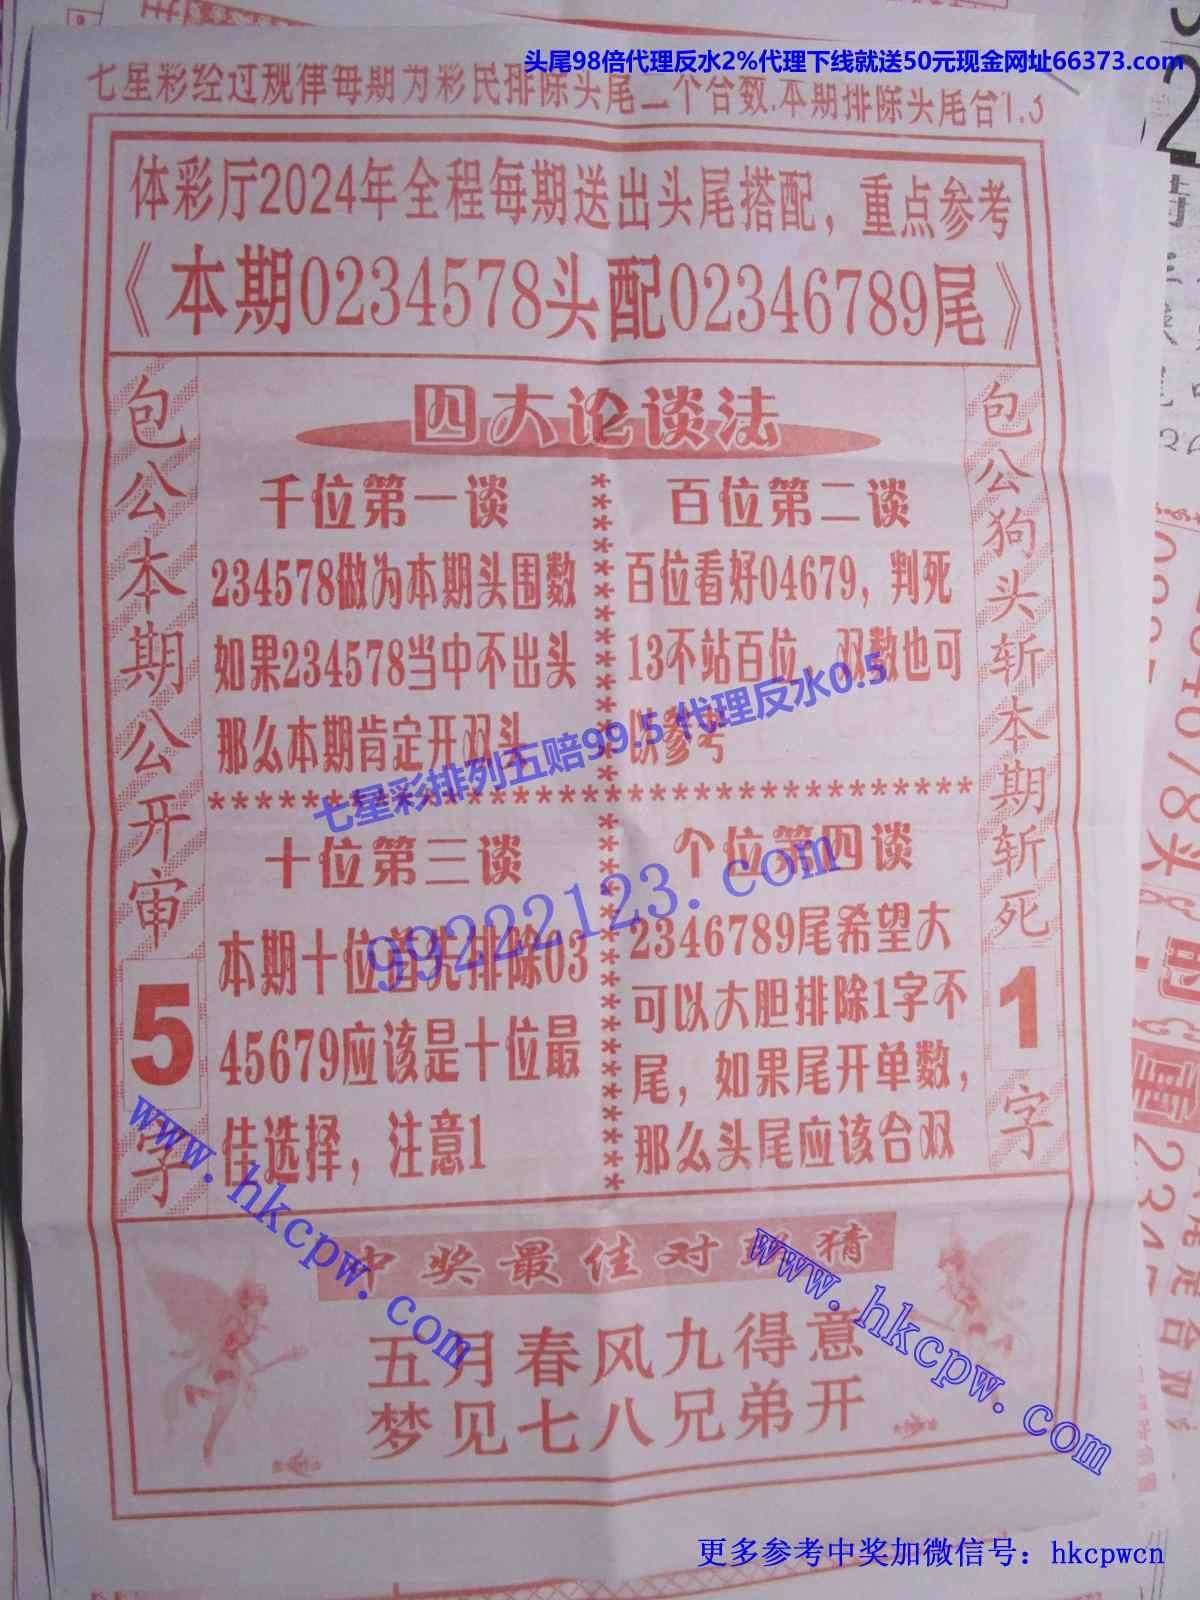 头尾98倍代理反水2%代理下线就送50元现金网址66373.com
七星彩经过规律每期为彩民排除头尾二个合数.本期排除头尾合1.3
体彩厅2024年全程每期送出头尾搭配，重点参考
《本期0234578头配02346789尾》
包公本期公开审5字
四大论谈法
千位第一谈
234578做为本期头围数
如果234578当中不出头
那么本期肯定开双头
百位第二谈
百位看好04679，判死
13不站百位，双数也可
以参考
七星彩排列五赔99.5 代理反水0.5
十位第三谈
本期十位首先排除03
45679应该是十位最
佳选择，注意1
个位第四谈
2346789尾希望大
可以大胆排除1字不
尾，如果尾开单数，
那么头尾应该合双
99222123.com
包公狗头斩本期斩死1字
www.hkcpw.com
www.hkcpw.com
中奖最佳对联猜
五月春风九得意
梦见七八兄弟开
更多参考中奖加微信号：hkcpwcn